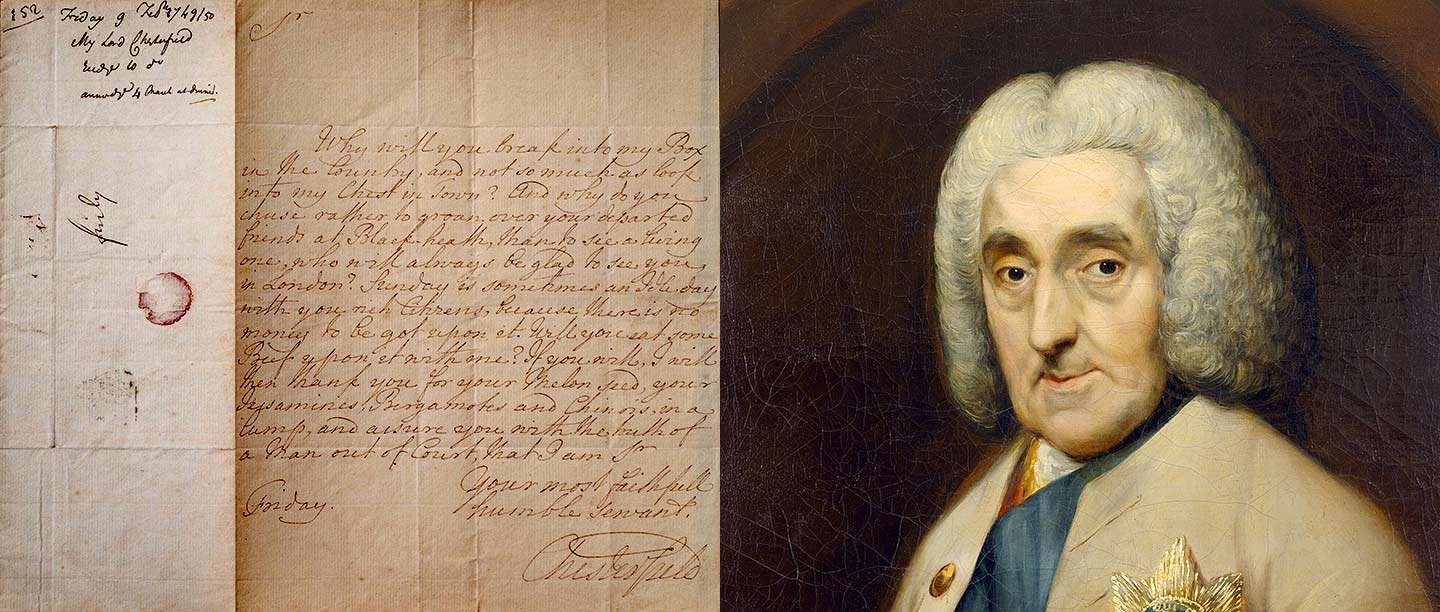 152
Friday 9 Feb 1749/50
My Lord Chesterfield
to
4 March at
Sr
Why will you break into my Box
in the Country, and not so much as look
into my Chest in Town? And why do you
chuse rather to groan over your departed
friends at Black heath, than to see a living
one, who will always be glad to see you
in London? Sunday is sometimes an Idle day
with you rich Citizens, because there is no
money to be got upon it. Will you eat some
Beef upon it with me? If you will, I will
then thank you for your Melon seed, your
Jessamines, Bergamotes and Chinois, in a
Lump, and assure you with the truth of
a Man out of Court, that I am Sr
Your most faithfull
humble servant.
Friday.
Chesterfield